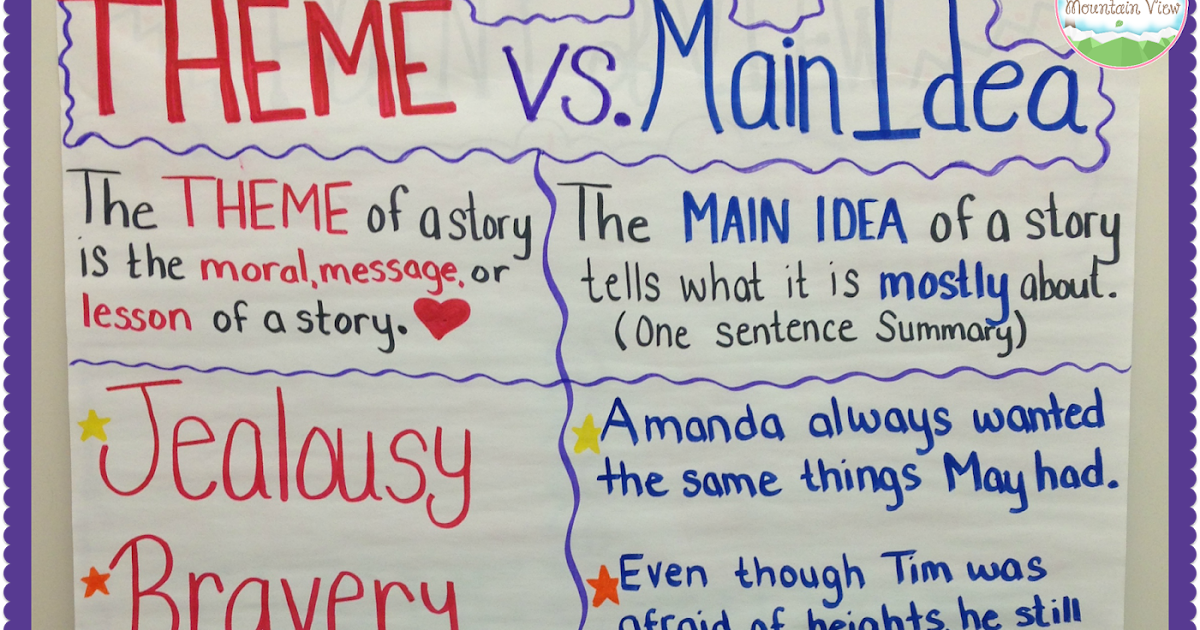 Mountain View
THEME vs. Main Idea
The THEME of a story
is the moral, message, or
lesson of a story.
The MAIN IDEA of a story
tells what it is mostly about.
(One sentence Summary)
Jealousy
Amanda always wanted
the same things May had.
Bravery
Even though Tim was
afraid of heights, he still